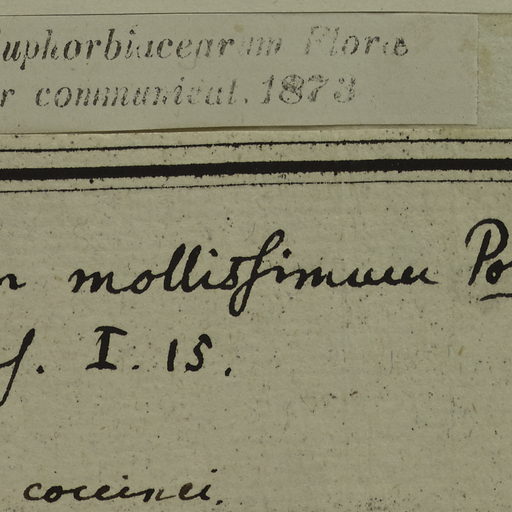 Euphorbiacearum Floræ
r communicat. 1873
mollissimum Po
f. I. 15.
coccinei.